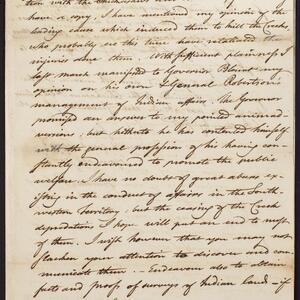 tion with the Chickasaws and
have a copy. I have mentioned my opinion of the
leading cause which induced them to the Creeks,
who probably ere this time have retaliated the
injuries done them. With sufficient plainness I
last march manifested to Governor Blount my
opinion on his own & General Robertson's
management of Indian affairs. The Governor
promised an answer to my pointed animad-
versions; but hitherto he has contented himself
with the general profession of his having con-
stantly endeavoured to promote the public
welfare. I have no doubt of great abuses ex-
isting in the conduct of affairs in the South-
western Territory; but the ceasing of the Creek
depredations I hope will put an end to most
of them. I wish however that you may not
slacken your attention to discover and com-
municate them. Endeavour also to obtain
facts and proofs of surveys of Indian Lands - if
of